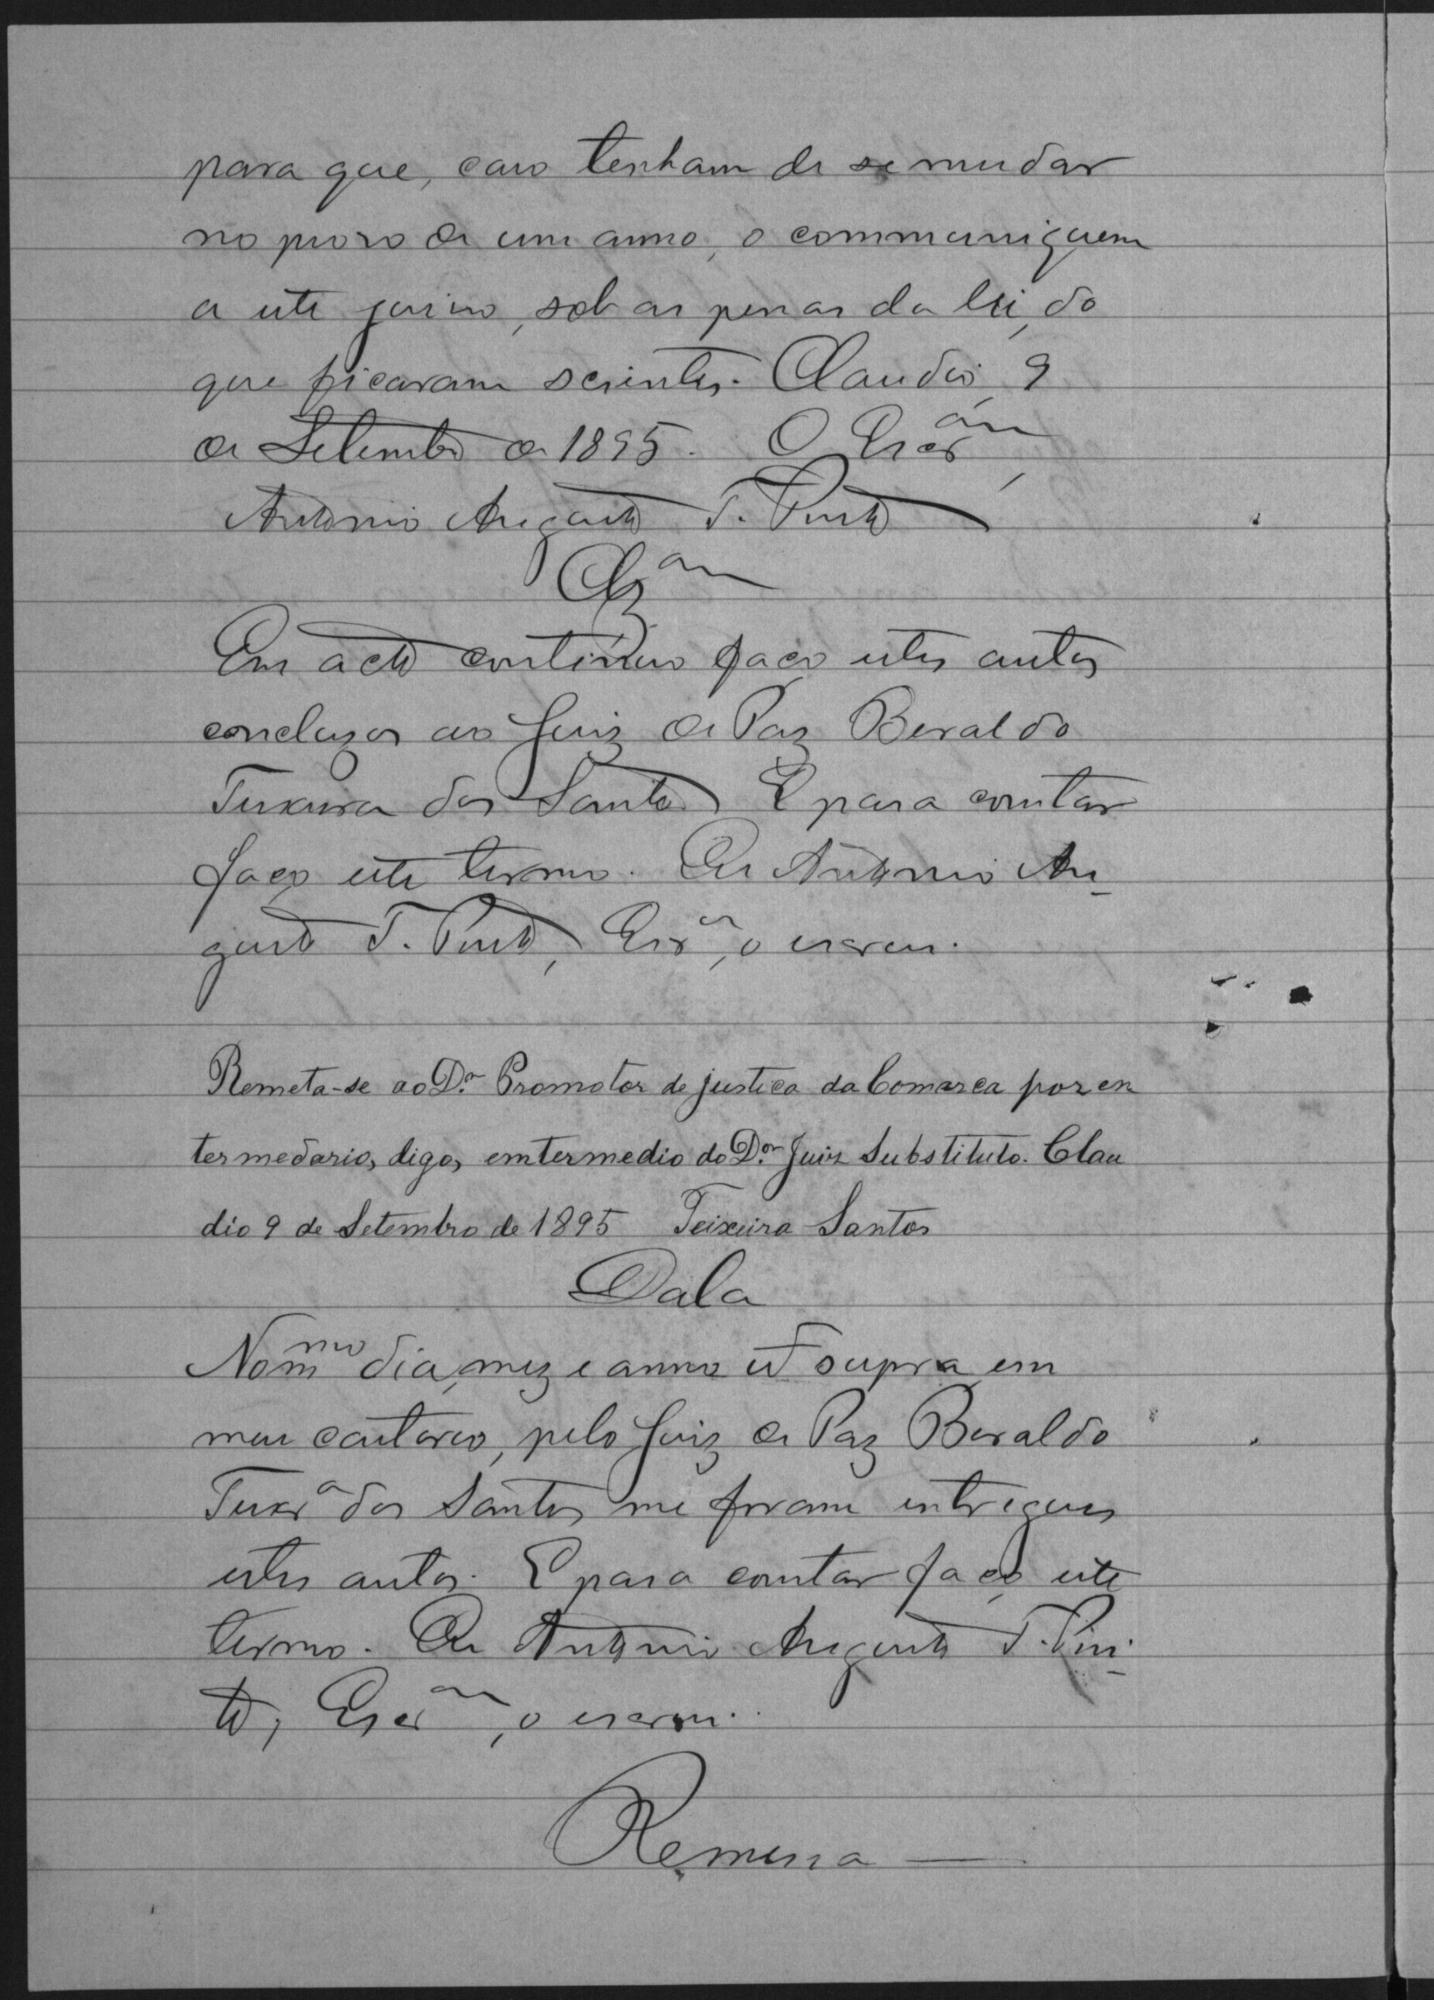 para que, caso tenham de se mudar
no praso de um anno, o communiquem
a este juizo, sob as penas da lei, do
que ficaram scientes. Claudio, 9
de Setembro de 1895. O Escr.am,
Antonio Augusto T. Pinto
Clz.am
Em acto continuo faço estes autos
concluzos ao Juiz de Paz Beraldo
Teixeira dos Santos. E para constar
faço este termo. Eu Antonio Au-
gusto T. Pinto, Escr.am, o escrevi.
Remeta-se ao D.or Promotor de justica da Comarca por en
termedario, digo, emtermedio do D.or Juiz Substituto. Clau
dio 9 de Setembro de 1895 Teixeira Santos
Data
No m.mo dia, mez e anno ut supra, em
meu cartorio, pelo Juiz de Paz Beraldo
Teixr.a dos Santos me foram entregues
estes autos. E para constar faço este
termo. Eu Antonio Augusto T. Pin-
to, Escr.am, o escrevi.
Remessa —